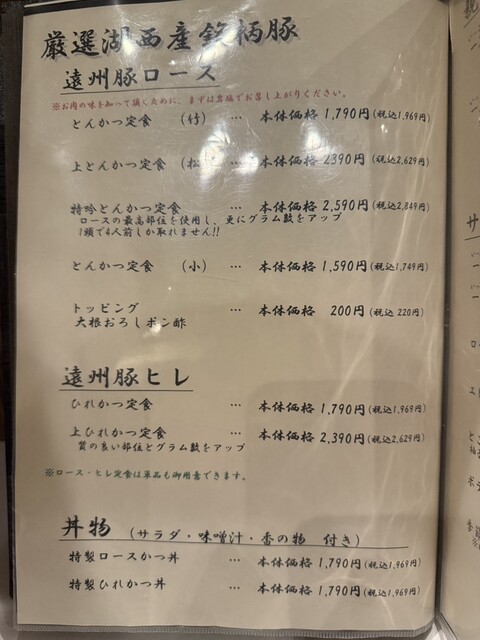 厳選湖西産銘柄豚
遠州豚ロース
※お肉の味を知って頂くために、まずは岩塩でお召し上がりください。
とんかつ定食 (竹) … 本体価格 1,790円(税込1,969円)
上とんかつ定食 (松) … 本体価格 2390円(税込2,629円)
特吟とんかつ定食 … 本体価格 2,590円(税込2,849円)
ロースの最高部位を使用し、更にグラム数をアップ
1頭で4人前しか取れません!!
とんかつ定食 (小) … 本体価格 1,590円(税込1,749円)
トッピング … 本体価格 200円(税込 220円)
大根おろしポン酢
遠州豚ヒレ
ひれかつ定食 … 本体価格 1,790円(税込1,969円)
上ひれかつ定食 … 本体価格 2,390円(税込2,629円)
質の良い部位とグラム数をアップ
※ロース・ヒレ定食は単品も御用意できます。
丼物 (サラダ・味噌汁・香の物 付き)
特製ロースかつ丼 … 本体価格 1,790円(税込1,969円)
特製ひれかつ丼 … 本体価格 1,790円(税込1,969円)